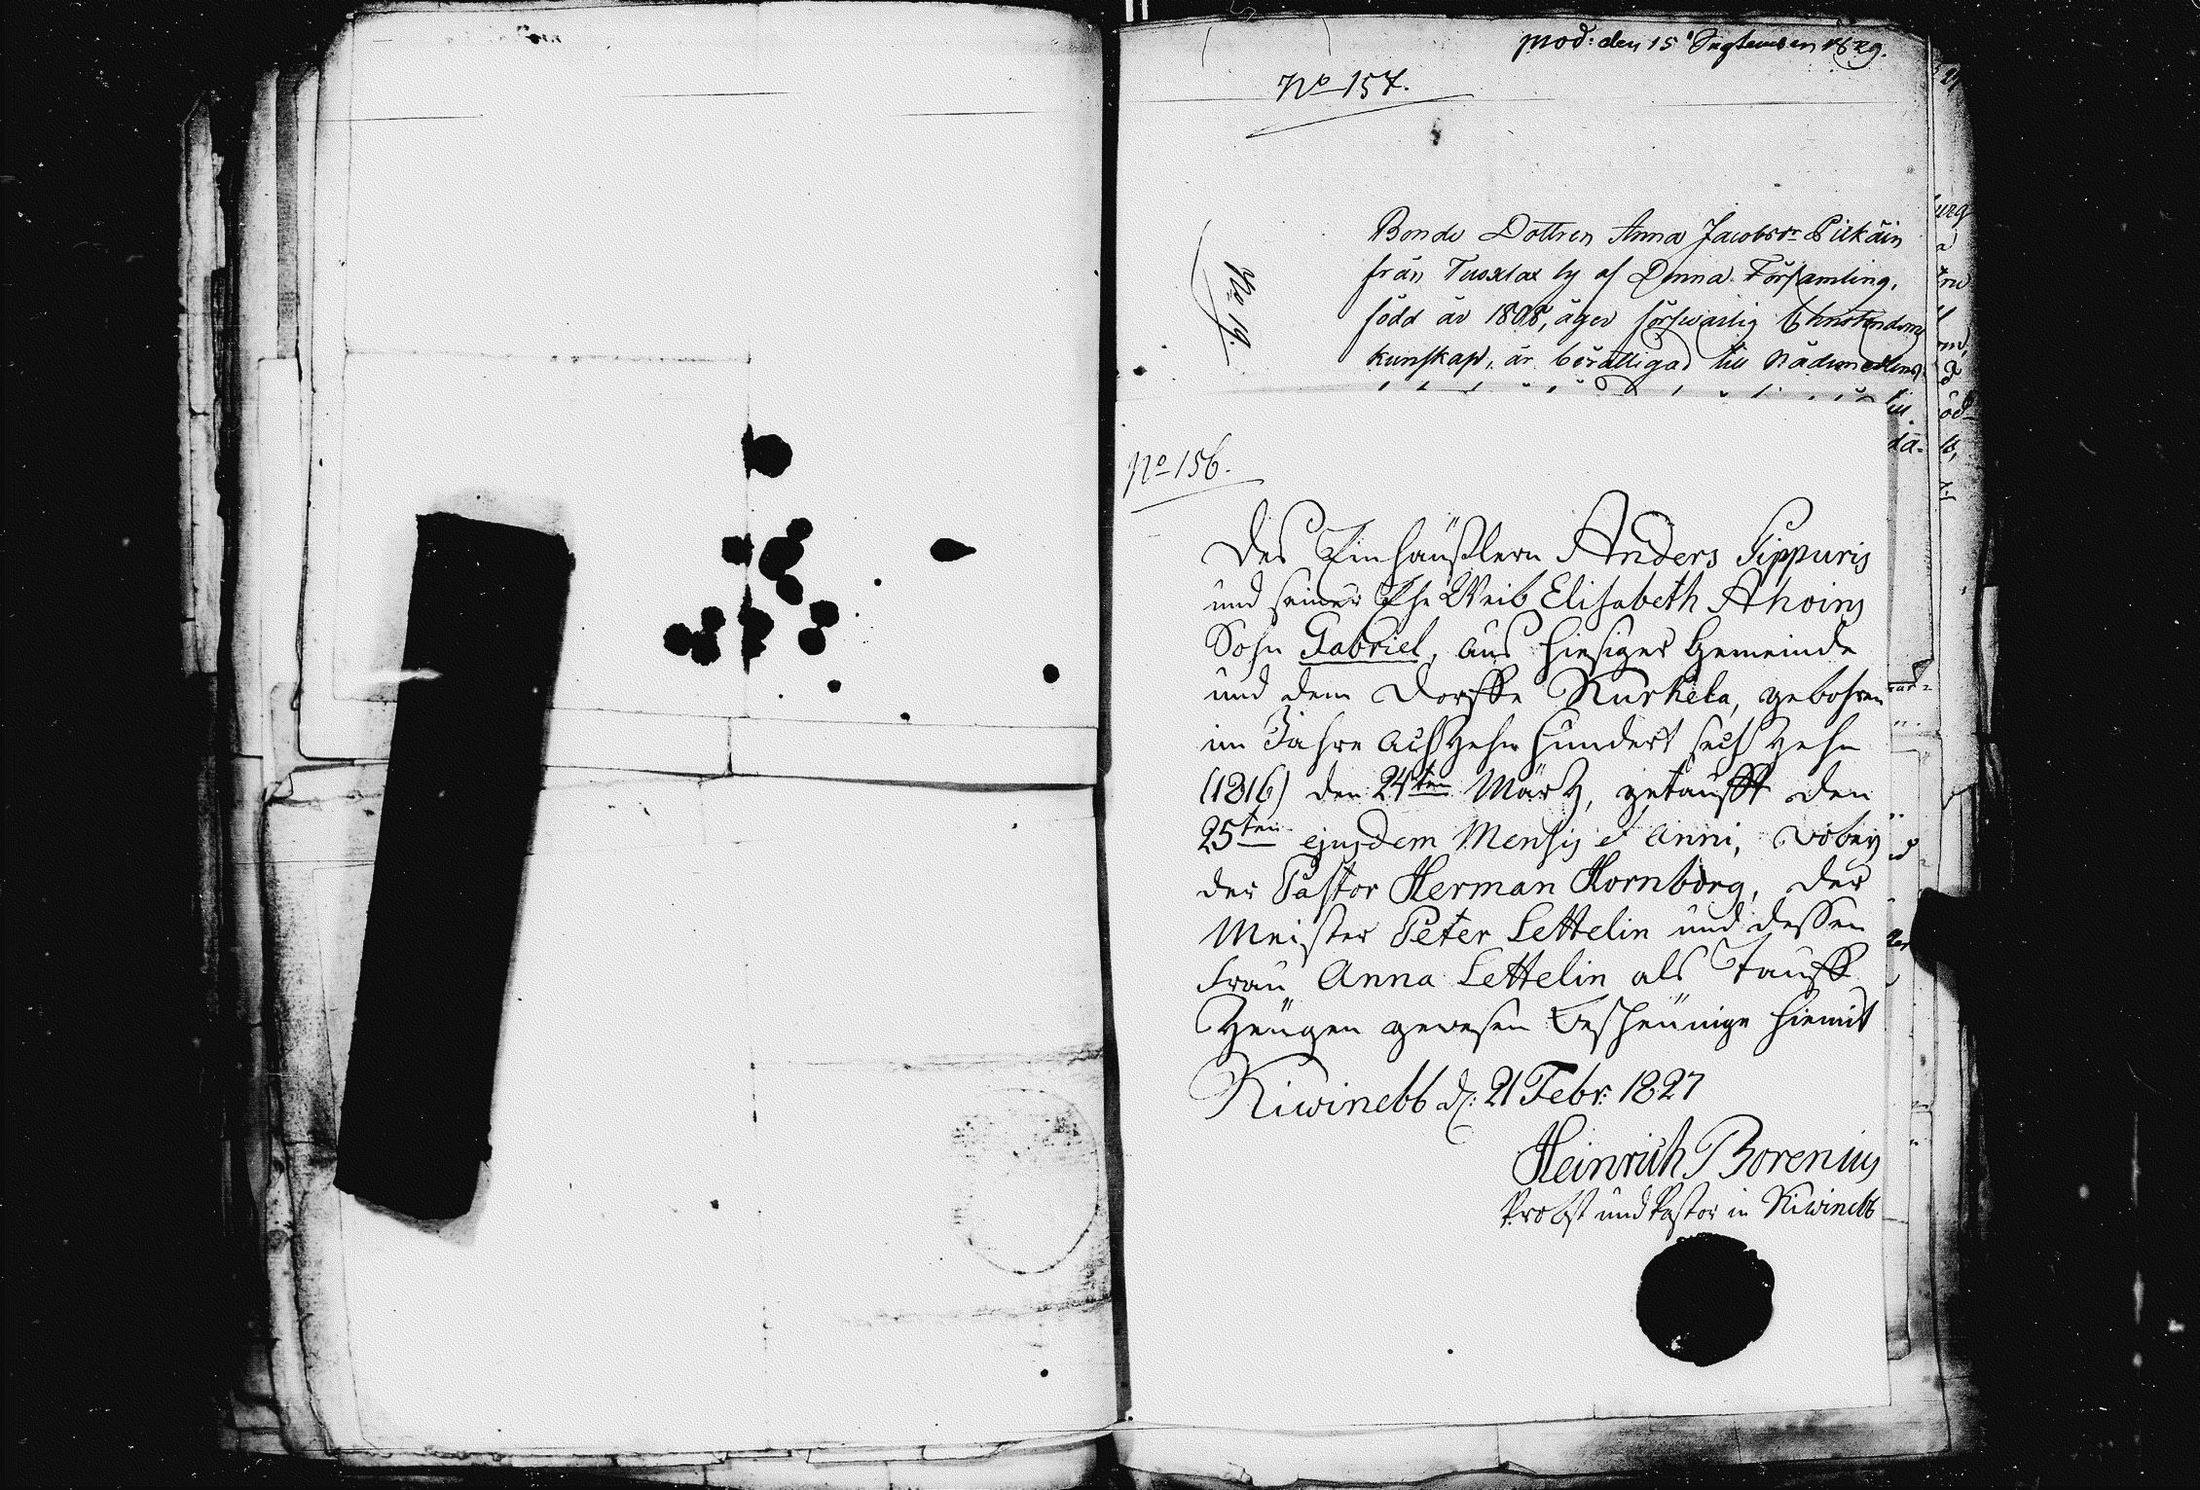 prod: den 15 September 1829.
No 157.
Bonde Dottren Anna Jacobsdr Pirkäin
från Tuoxlax by af Denna Församling,
född år 1808, äger förswarlig Christendoms
kunskap, är berättigad till Nådemedlens
No 19.
No 156.
Des Einhäußlern Anders Pippuris
und seiner Ehe Weib Elisabeth Ahoins
Sohn Gabriel, aus hiesiger Gemeinde
und dem Dorffe Kurkela, gebohren
im Jahre achtzehn hundert sechzehn
(1816) den 24ten März, getaufft den
25ten ejusdem Mensis et Anni, wobey
der Pastor Herman Hornborg, der
Meister Peter Lettelin und dessen
Frau Anna Lettelin als Tauff
Zeugen gewesen bescheinige hiemit
Kiwinebb d: 21 Febr: 1827
Heinrich Borenius
Probst und Pastor in Kiwinebb